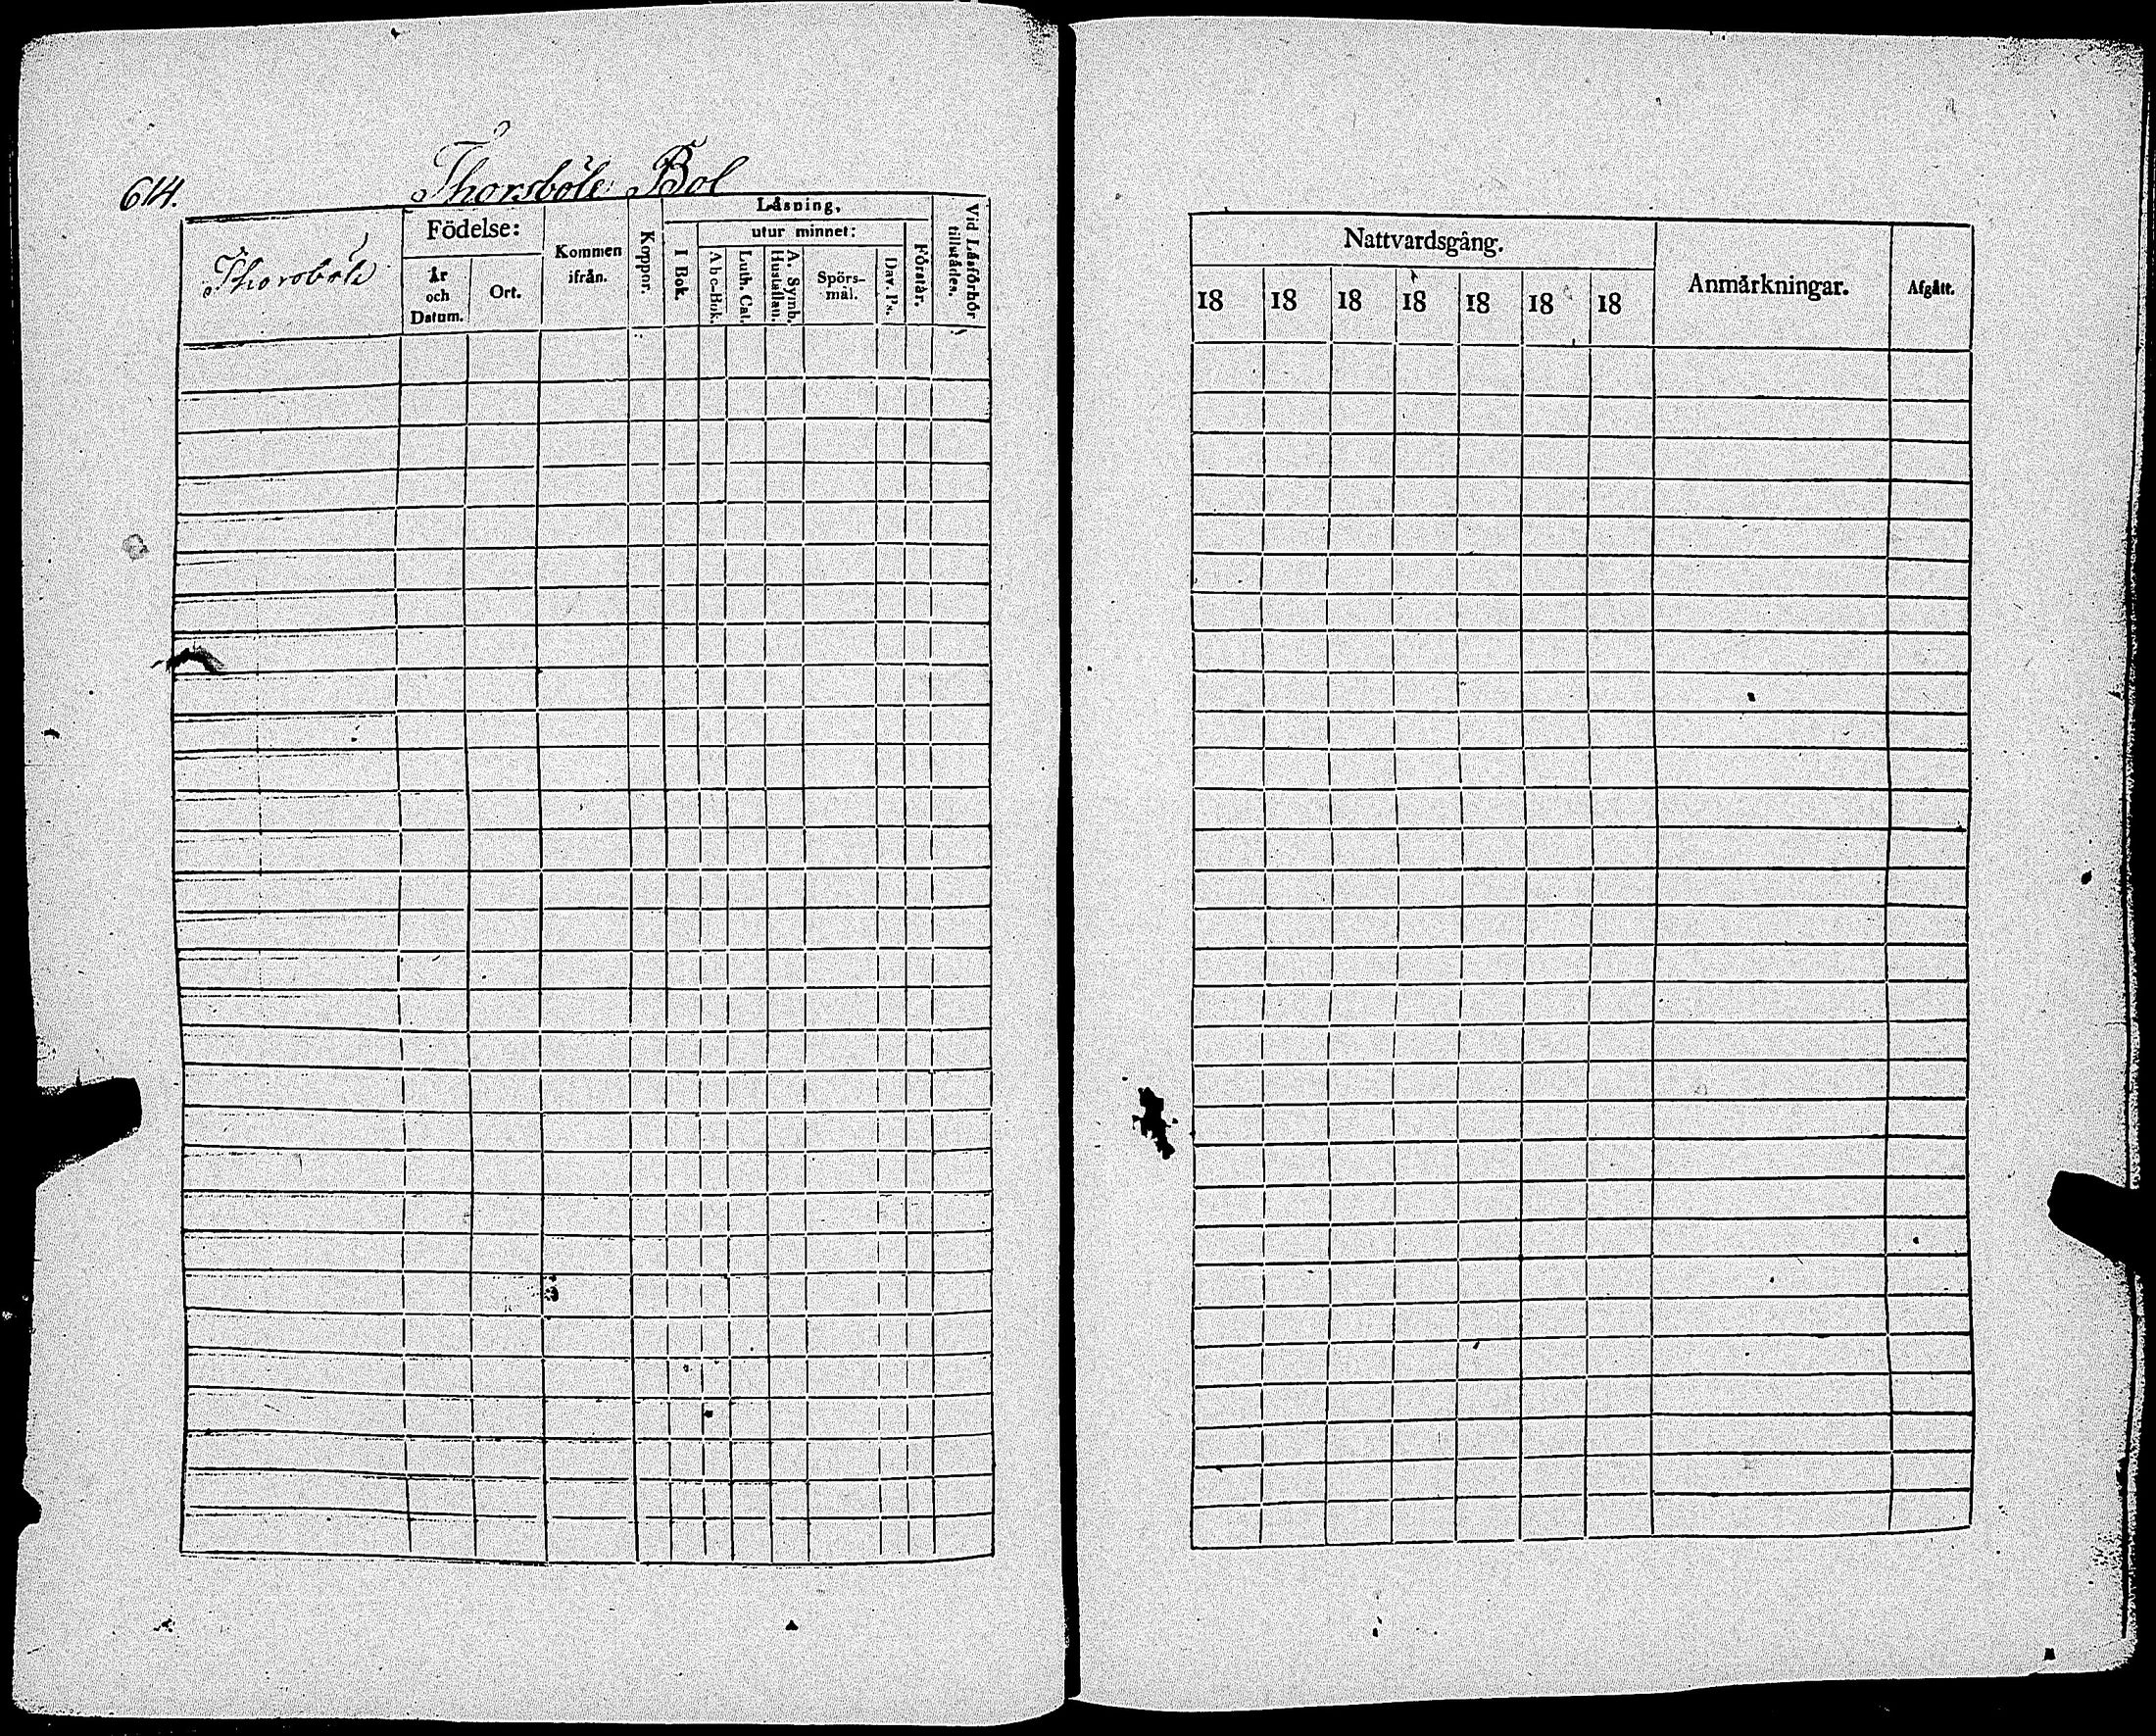 614.
Thorsböle Bol
Thorsböle
Födelse:
År och Datum.
Ort.
Kommen ifrån.
Koppor.
Låsning,
I Bok.
utur minnet:
Abc-Bok.
Luth. Cat.
A. Symb. Hustaflan.
Spörsmål.
Dav. Ps.
Förstår.
Vid Låsförhör tillstådes.
Nattvardsgång.
18 18 18 18 18 18 18
Anmårkningar.
Afgått.